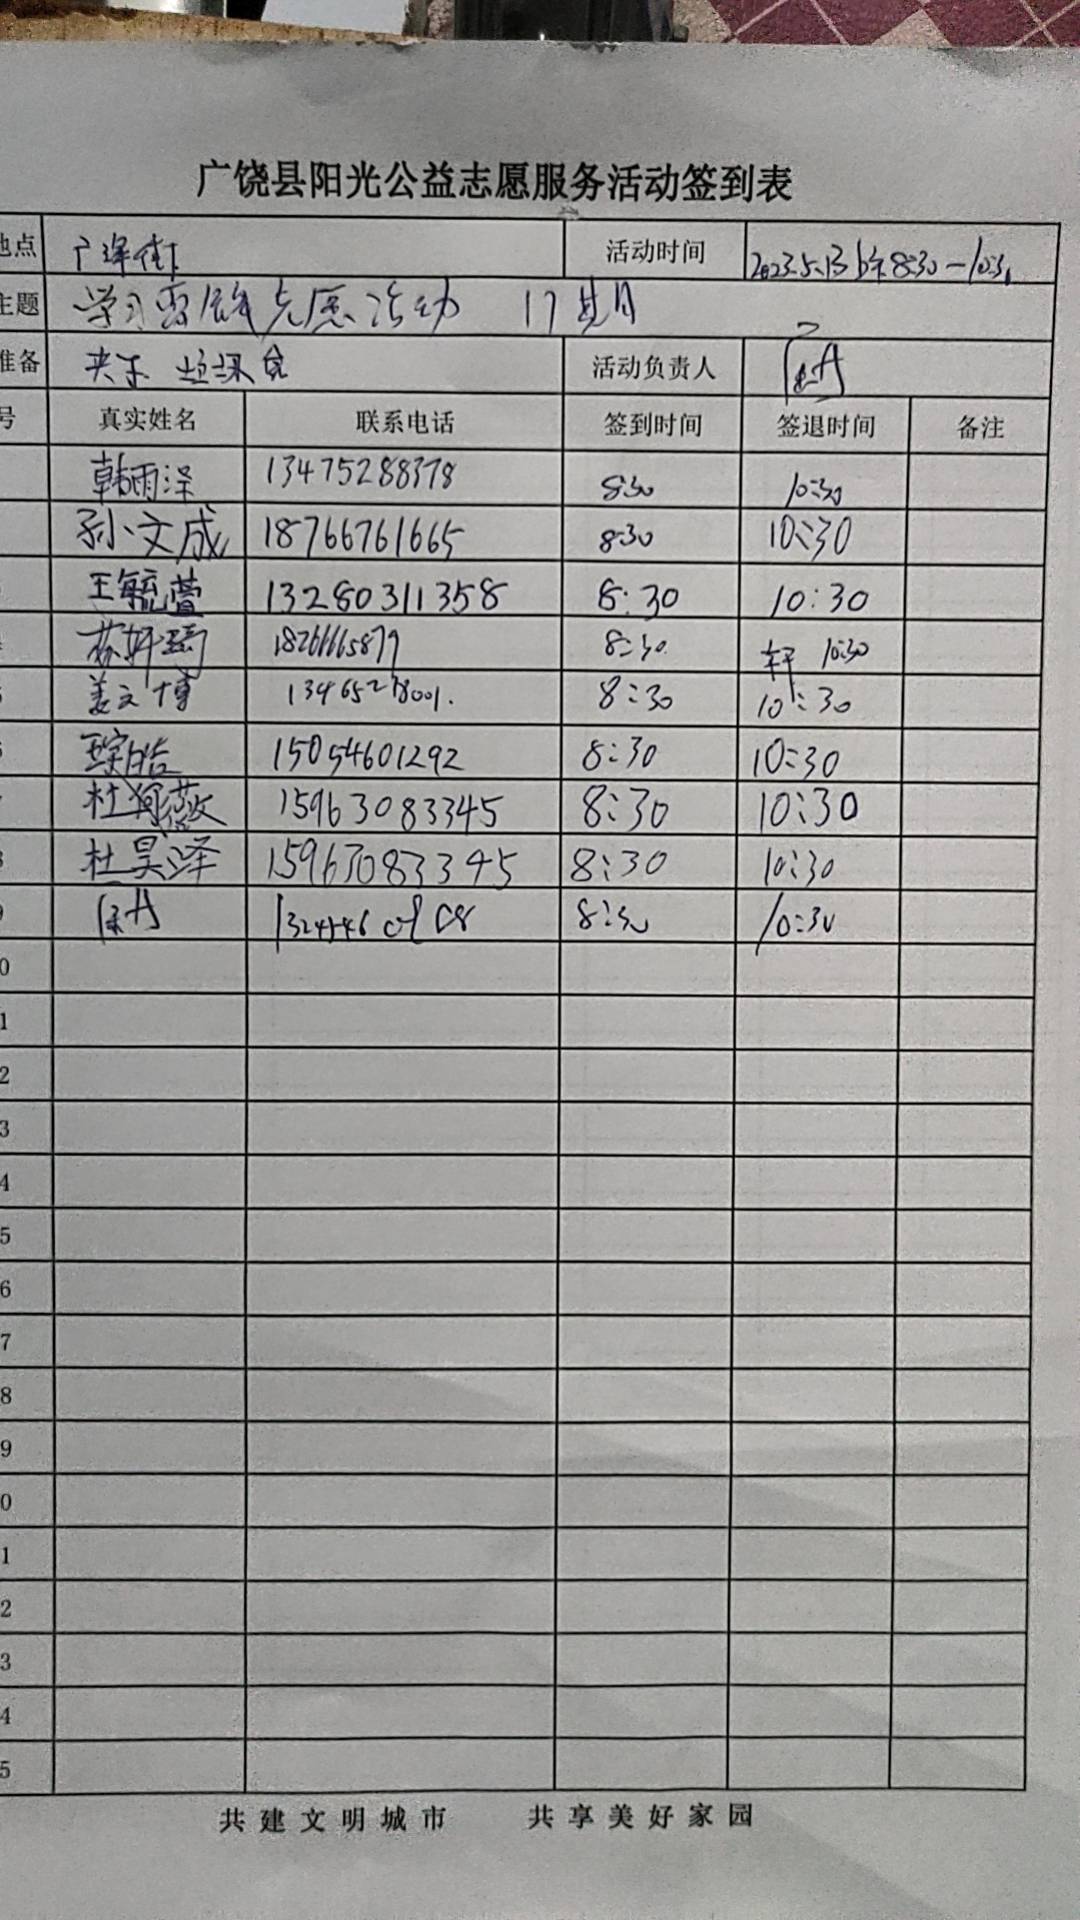 广饶县阳光公益志愿服务活动签到表
地点 活动时间 2023.5.13 上午8:30-10:30
主题 学习雷锋志愿活动 17
准备 夹子 垃圾袋 活动负责人
号 真实姓名 联系电话 签到时间 签退时间 备注
韩雨泽 13475288378 8:30 10:30
孙文成 18766761665 8:30 10:30
王毓萱 13280311358 8:30 10:30
4 苏轩 18266665877 8:30 轩 10:30
5 姜文博 13465278001. 8:30 10:30
6 皓 15054601292 8:30 10:30
7 杜 15963083345 8:30 10:30
8 杜昊泽 15963083345 8:30 10:30
9 8:30 10:30
0
1
2
3
4
5
6
7
8
9
0
1
2
3
4
5
共建文明城市 共享美好家园